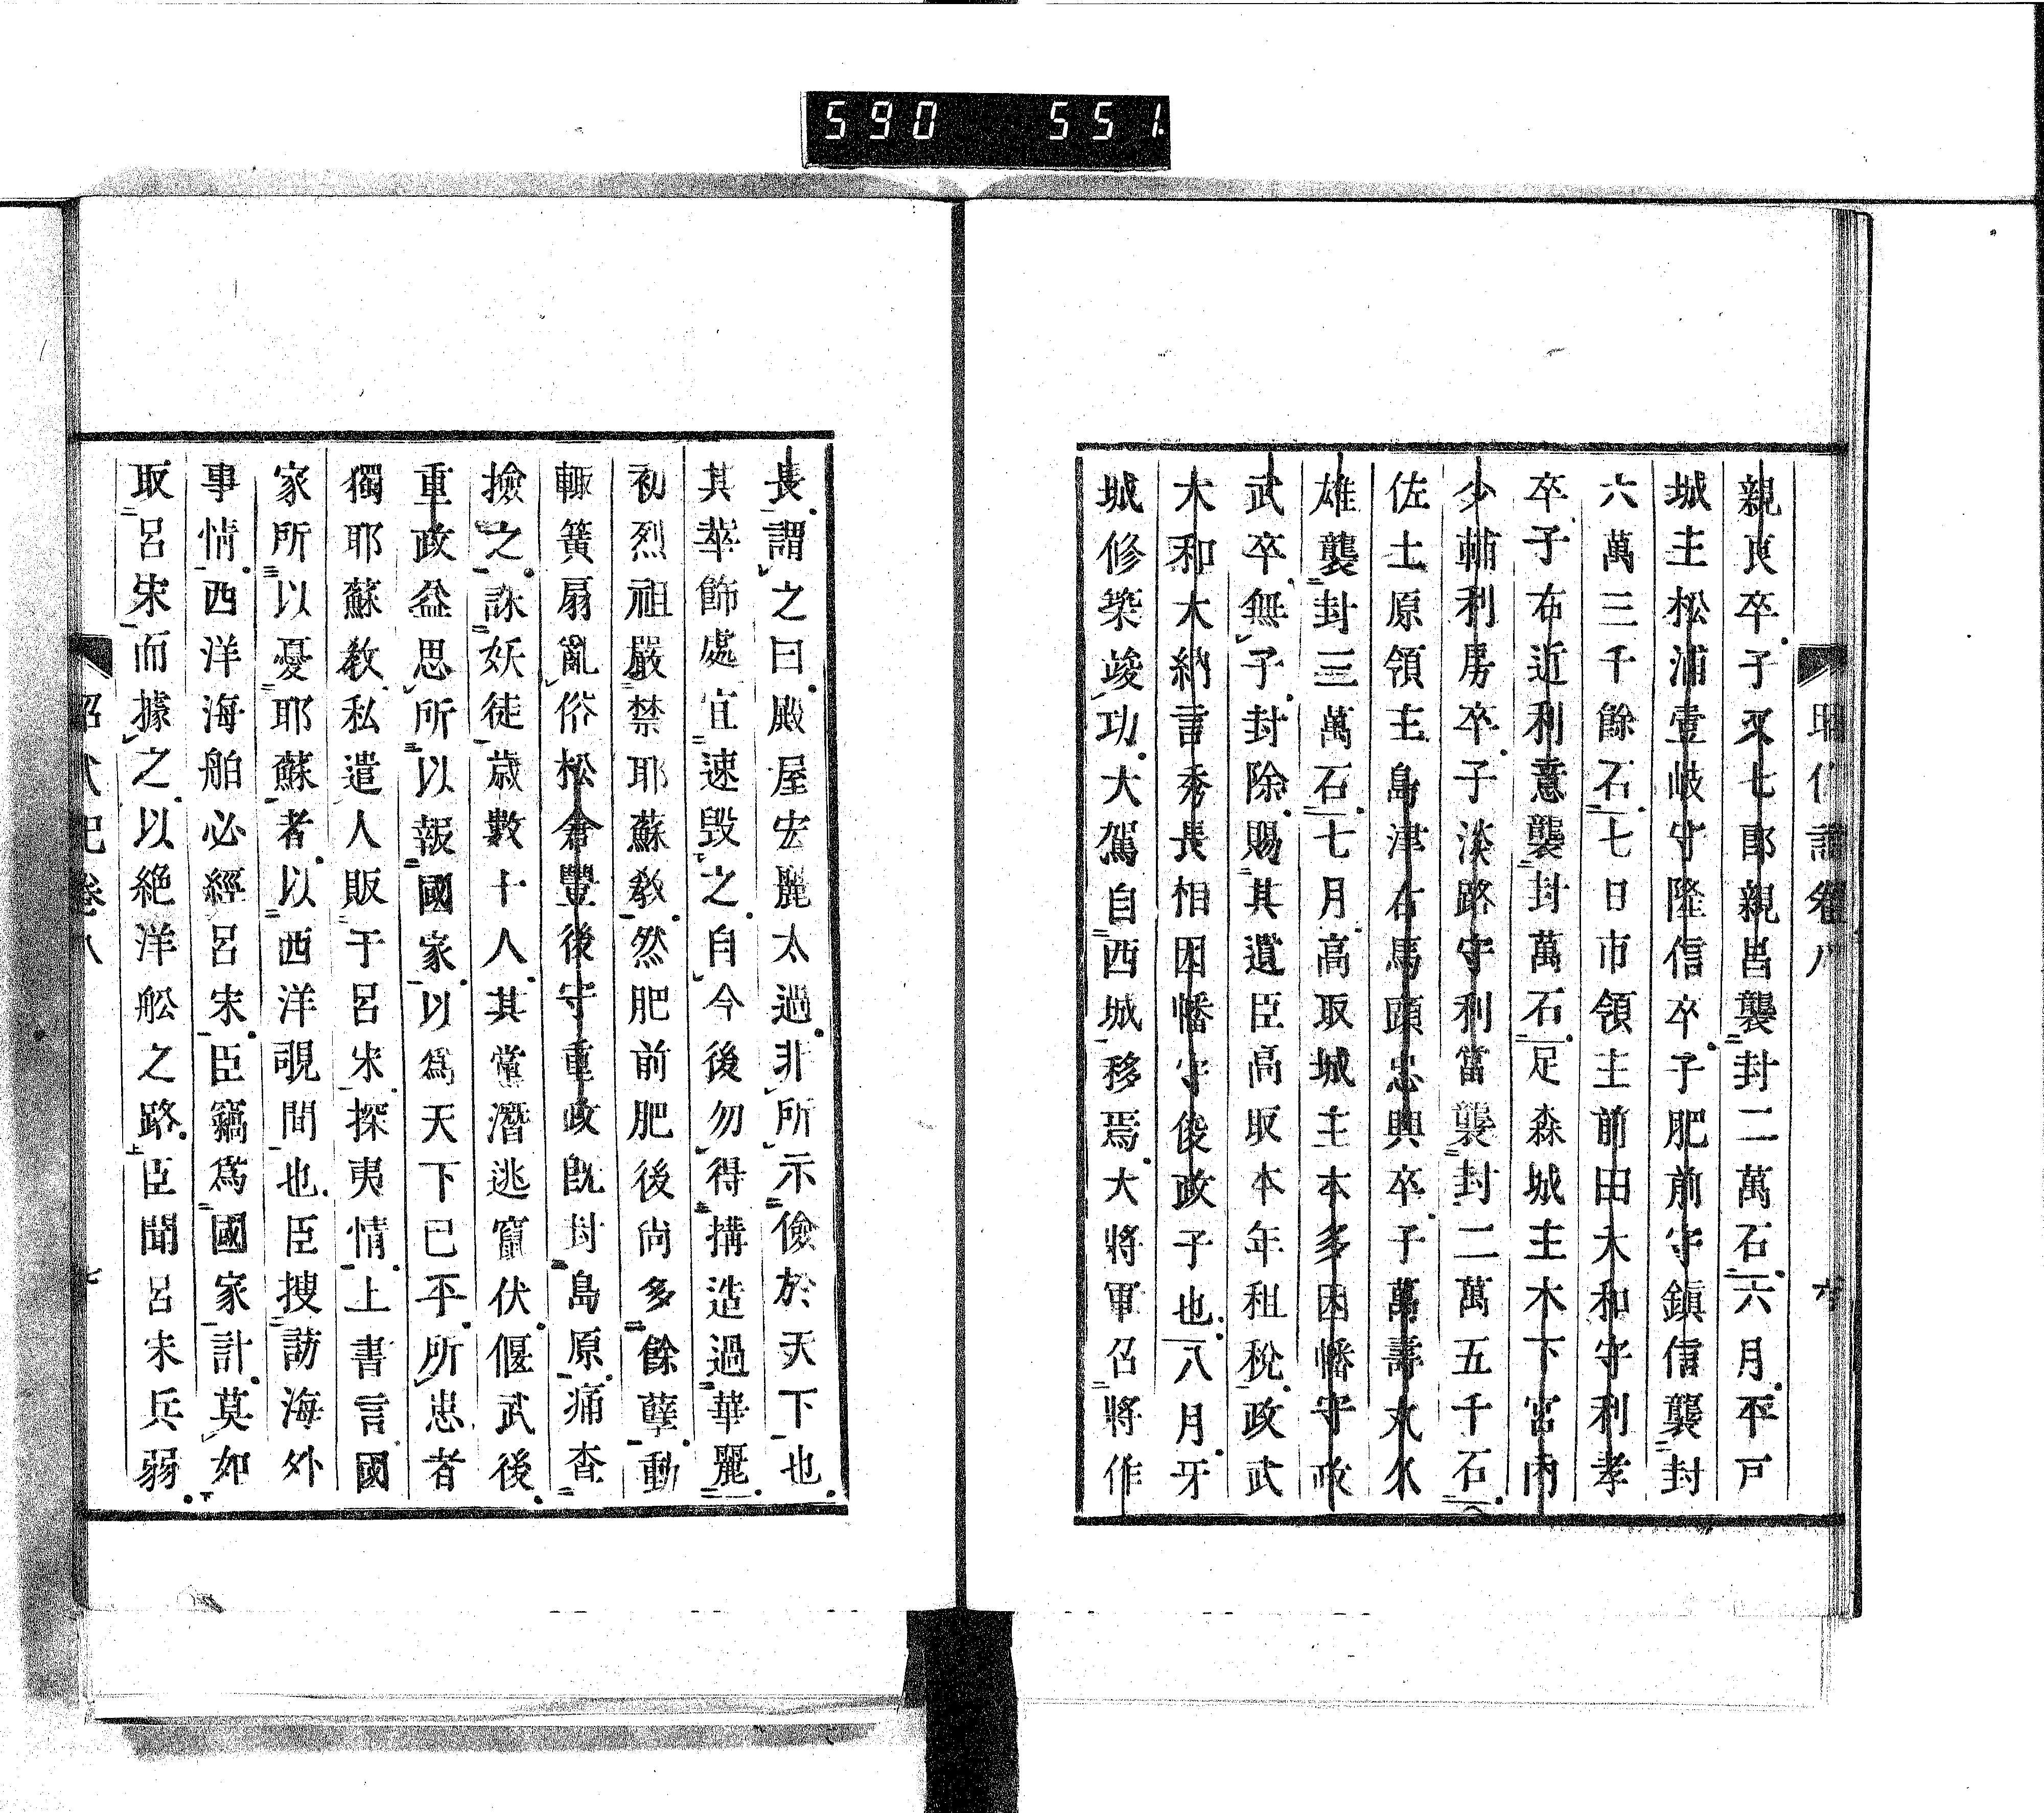 590 551
親良卒子又七郎親昌襲封二萬石六月平戸
城主松浦壹岐守隆信卒子肥前守鎭信襲封
六萬三千餘石七日市領主前田大和守利孝
卒子右近利意襲封萬石足森城主木下宮内
少輔利房卒子淡路守利當襲封二萬五千石
佐土原領主島津右馬頭忠興卒子萬壽丸久
雄襲封三萬石七月高取城主本多因幡守政
武卒無子封除賜其遺臣高取本年租稅政武
大和大納言秀長相因幡守俊政子也八月牙
城修築竣功大駕自西城移焉大將軍召將作
長謂之曰殿屋宏麗太過非所示儉於天下也
其華飾處宜速毀之自今後勿得搆造過華麗
初烈祖嚴禁耶蘇敎然肥前肥後尚多餘孽動
輙簧扇亂俗松倉豐後守重政既封島原痛査
撿之誅妖徒歲數十人其黨潛逃竄伏偃武後
重政益思所以報國家以爲天下已平所患者
獨耶蘇敎私遣人販于呂宋探夷情上書言國
家所以憂耶蘇者以西洋覘間也臣搜訪海外
事情西洋海舶必經呂宋臣竊爲國家計莫如
取呂宋而據之以絶洋舩之路臣聞呂宋兵弱
昭代記卷八